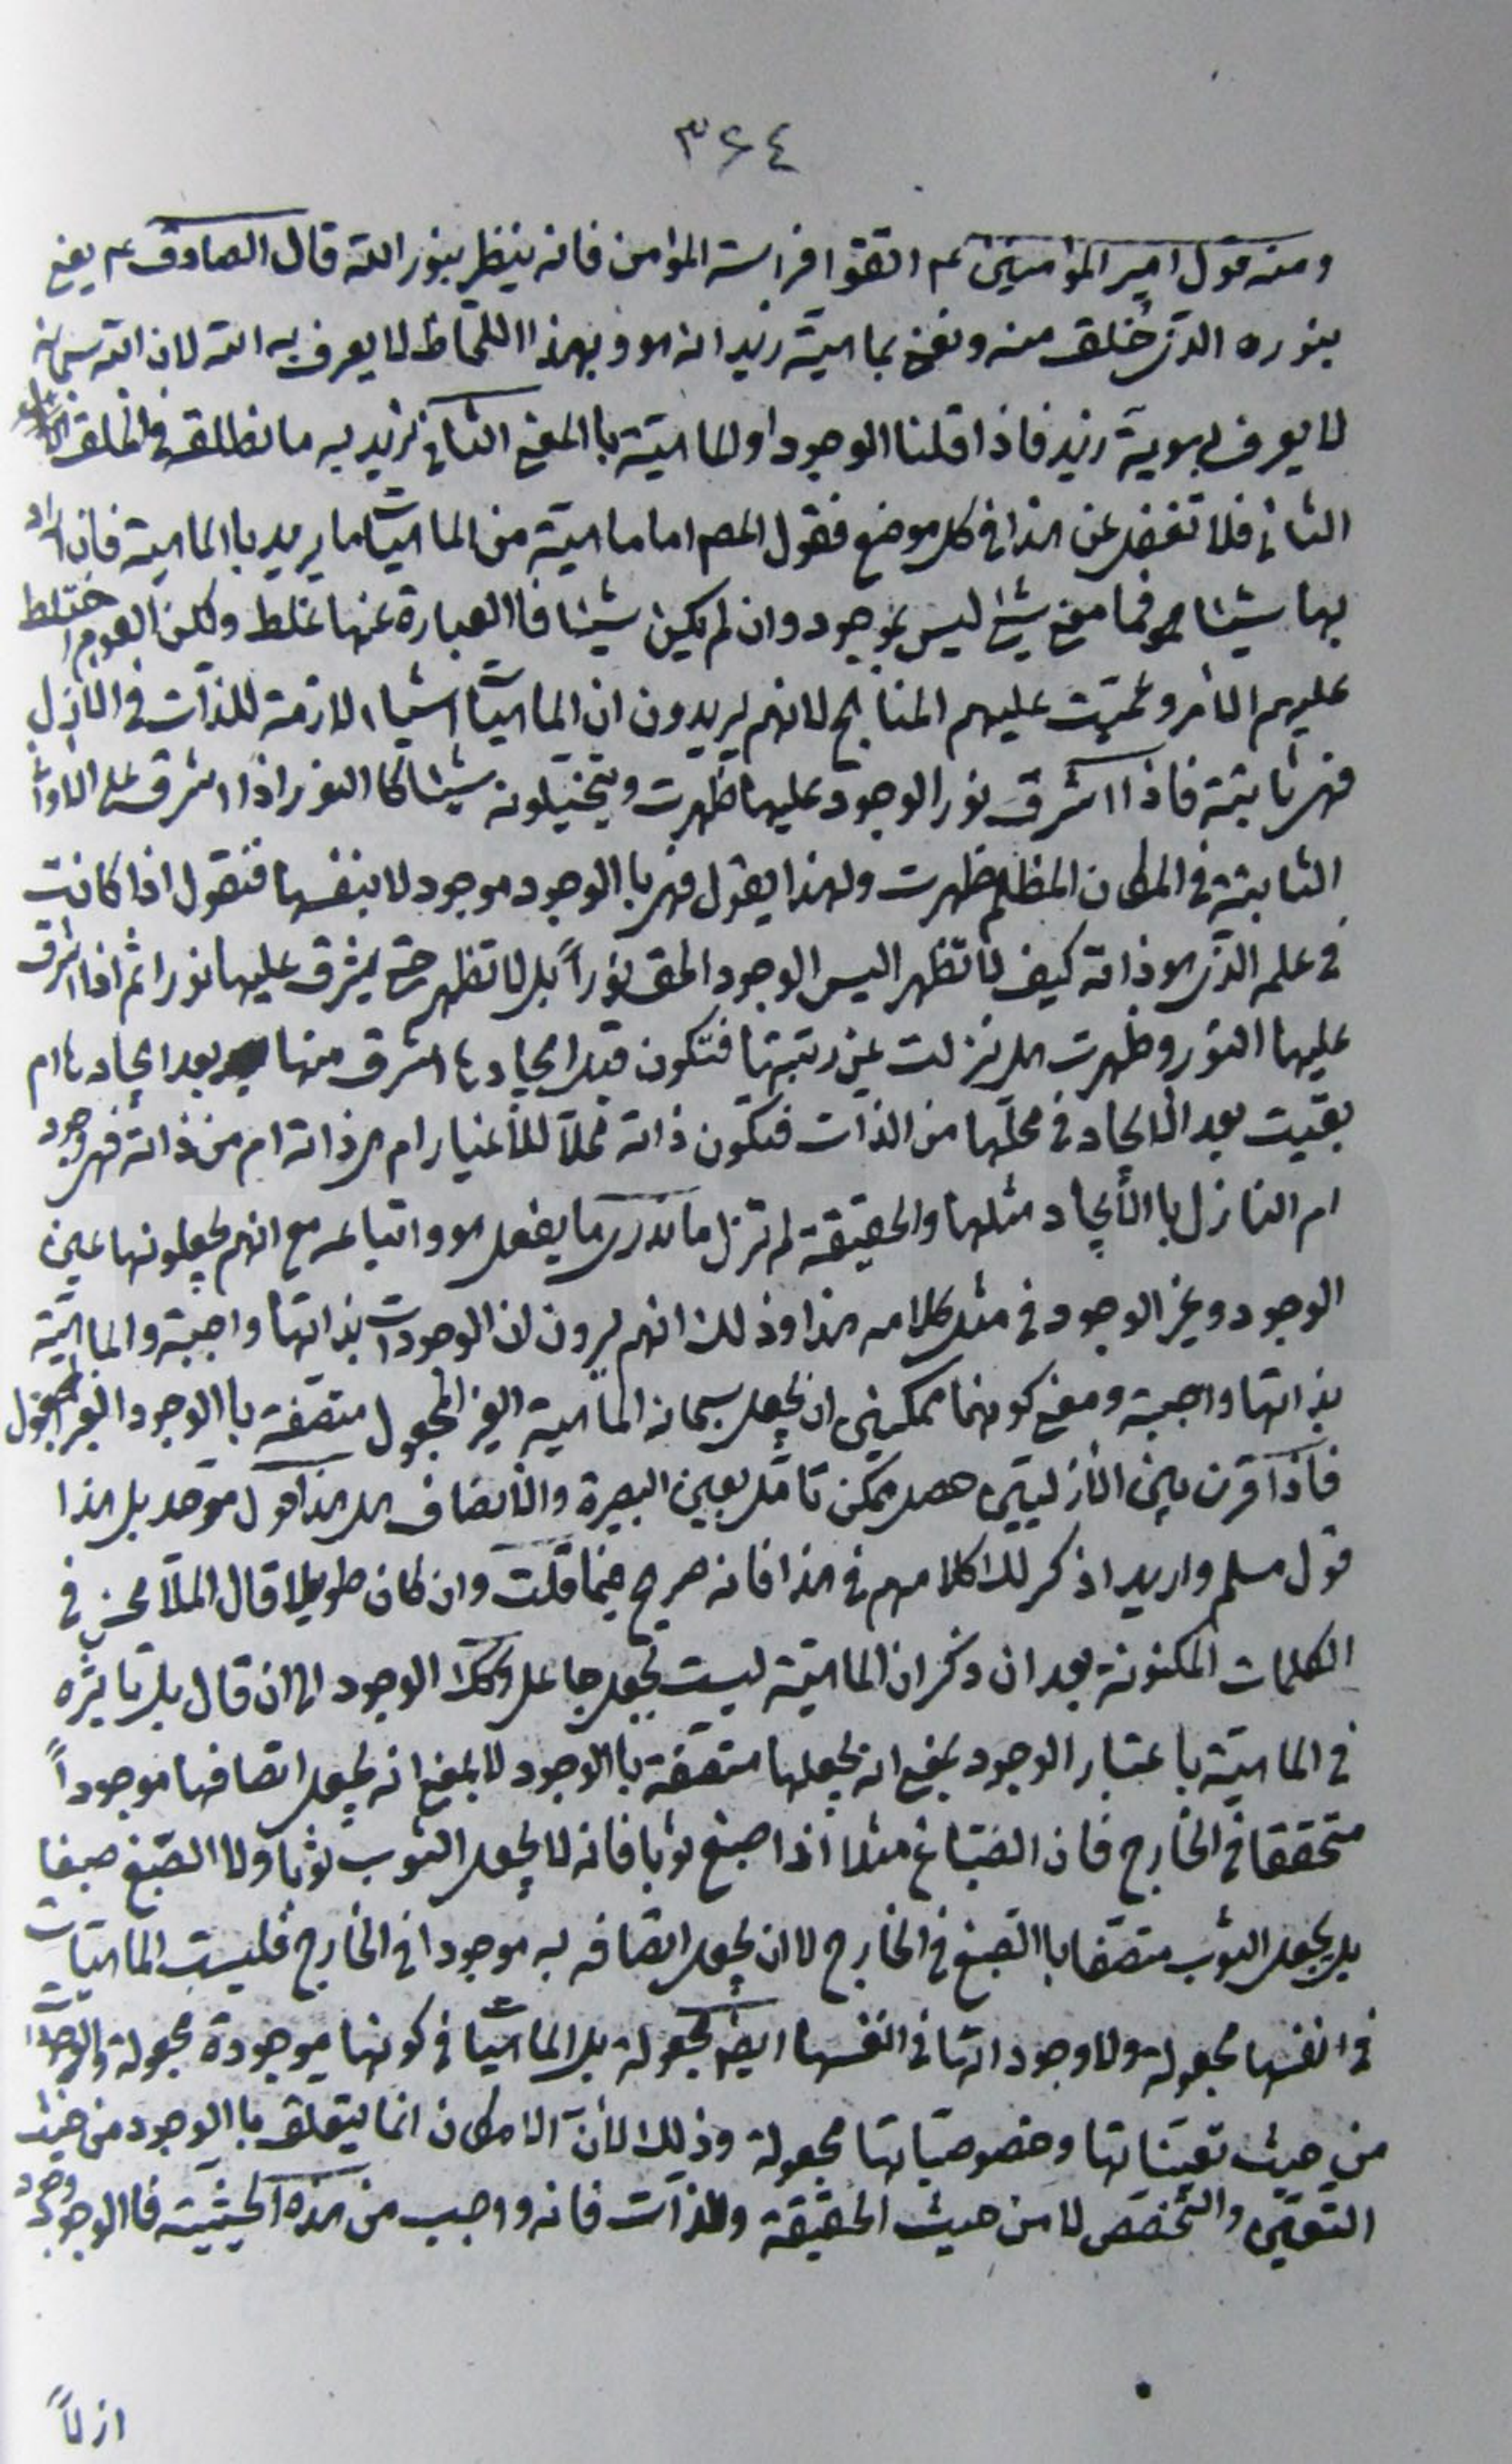 ٣٦٤
ومنه قول امير المؤمنين عم اتقوا فراسة المؤمن فانه ينظر بنور الله قال الصادق عم يعني
بنوره الذي خلق منه ونعني بماهيّة زيد انه هو وبهذا اللحاظ لا يعرف به الله لان الله سبحانه
لا يعرف بهوية زيد فاذا قلنا الوجود او الماهيّة با المعنى الثاني نريد به ما نطلقه في الخلق
الثاني فلا تغفل عن هذا في كل موضع فقول المصم اما ماهيّة من الماهيات ما يريد با الماهية فان اراد
بها شيئا فما معنى شيئ ليس بموجود وان لم يكن شيئا فا العبارة عنها غلط ولكن القوم اختلط
عليهم الأمر وعميت عليهم المناهج لانهم يريدون ان الماهيات اشياء لازمة للذات في الأزل
فهي ثابتة فاذا اشرق نور الوجود عليها ظهرت ويتخيلونه شيئا كا النور اذا اشرق على
الثابتة في المكان المظلم ظهرت ولهذا يقول فهي با الوجود موجود لا بنفسها فنقول اذا كانت
في علمه الذي هو ذاته كيف لا تظهر اليس الوجود الحق نوراً بل لا تظهر حتى يشرق عليها نورا ثم اذا اشرق
عليها النور وظهرت هل نزلت عن رتبتها فتكون قبل ايجادها اشرق منها بعد ايجادها ام
بقيت بعد الأيجاد في محلّها من الذات فتكون ذاته محلاّ للأغيار ام هي ذاته ام من ذاته فهي وجود
ام النازل با الأيجاد مثلها والحقيقة لم تزل ما ندري ما يفعل هو واتباعه مع انهم يجعلونها عين
الوجود وغير الوجود في مثل كلامه هذا وذلك انهم يرون ان الوجودات بذاتها واجبة والماهيّة
بذاتها واجبة ومعنى كونهما ممكنين ان يجعل سبحانه الماهية الغير المجعول متصفة با الوجود الغير المجعول
فاذا قرن بين الأزليين حصل ممكن تأمّل بعين البصيرة والأنصاف هل هذا قول موحد بل هذا
قول مسلم واريد اذكر لك كلامهم في هذا فانه صريح فيما قلت وان كان طويلا قال الملّا محسن في
الكلمات المكنونة بعد ان ذكر ان الماهيّة ليست بجعل جاعل وكك الوجود الى ان قال بل تأثيره
في الماهيّة با عتبار الوجود بمعنى انه يجعلها متصفة با الوجود لا بمعنى انه يجعل اتصافها موجوداً
متحققا في الخارج فان الصّباغ مثلا اذا صبغ ثوبا فانه لا يجعل الثوب ثوبا ولا الصّبغ صبغا
بل يجعل الثوب متصفا با الصّبغ في الخارج لا ان يجعل اتصافه به موجودا في الخارج فليست الماهيات
في انفسها مجعولة ولا وجوداتها في انفسها ايضا مجعولة بل الماهيات في كونها موجودة مجعولة والوجودات
من حيث تعيّناتها وخصوصيّاتها مجعولة وذلك لأنّ الامكان انما يتعلق با الوجود من حيث
التعيّن والتّخصّص لا من حيث الحقيقة والذات فانه واجب من هذه الحيثيّة فا الوجود وجود
ازلاً